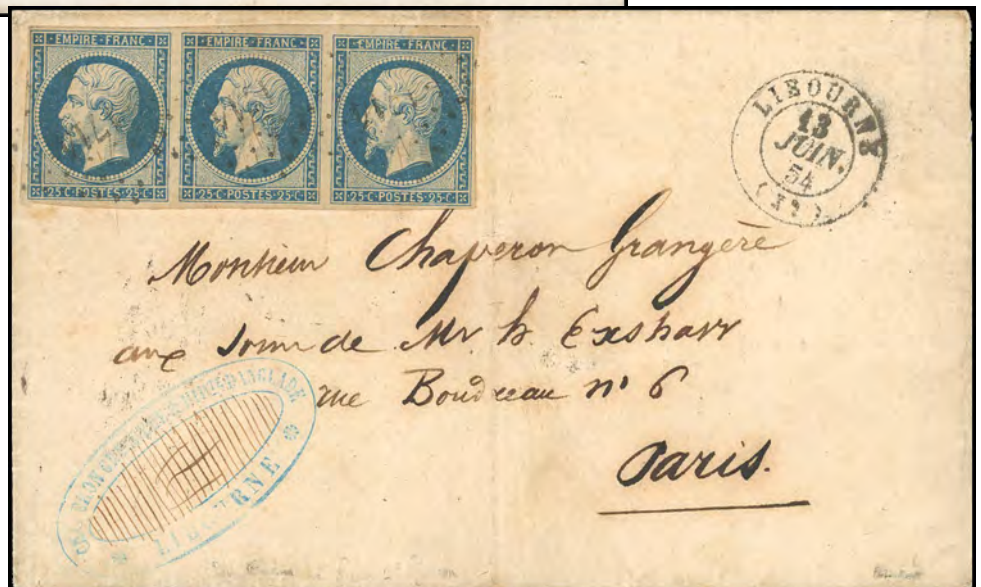 EMPIRE FRANC EMPIRE FRANC EMPIRE FRANC
25 C POSTES 25 C 25 C POSTES 25 C 25 C POSTES 25 C
LIBOURNE
13
JUIN
54
(32)
Monsieur Chaperon Grangère
aux soins de Mr h. Exshaw
rue Boudreau n° 6
Paris.
LIBOURNE